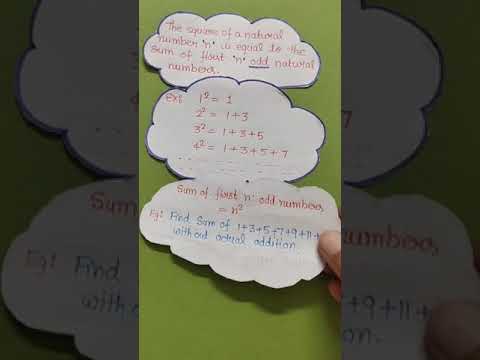 The square of a natural
number 'n' is equal to the
sum of first 'n' odd natural
numbers.
Ex: 1² = 1
2² = 1+3
3² = 1+3+5
4² = 1+3+5+7
Sum of first 'n' odd numbers
= n²
Eg: Find sum of 1+3+5+7+9+11+
without actual addition